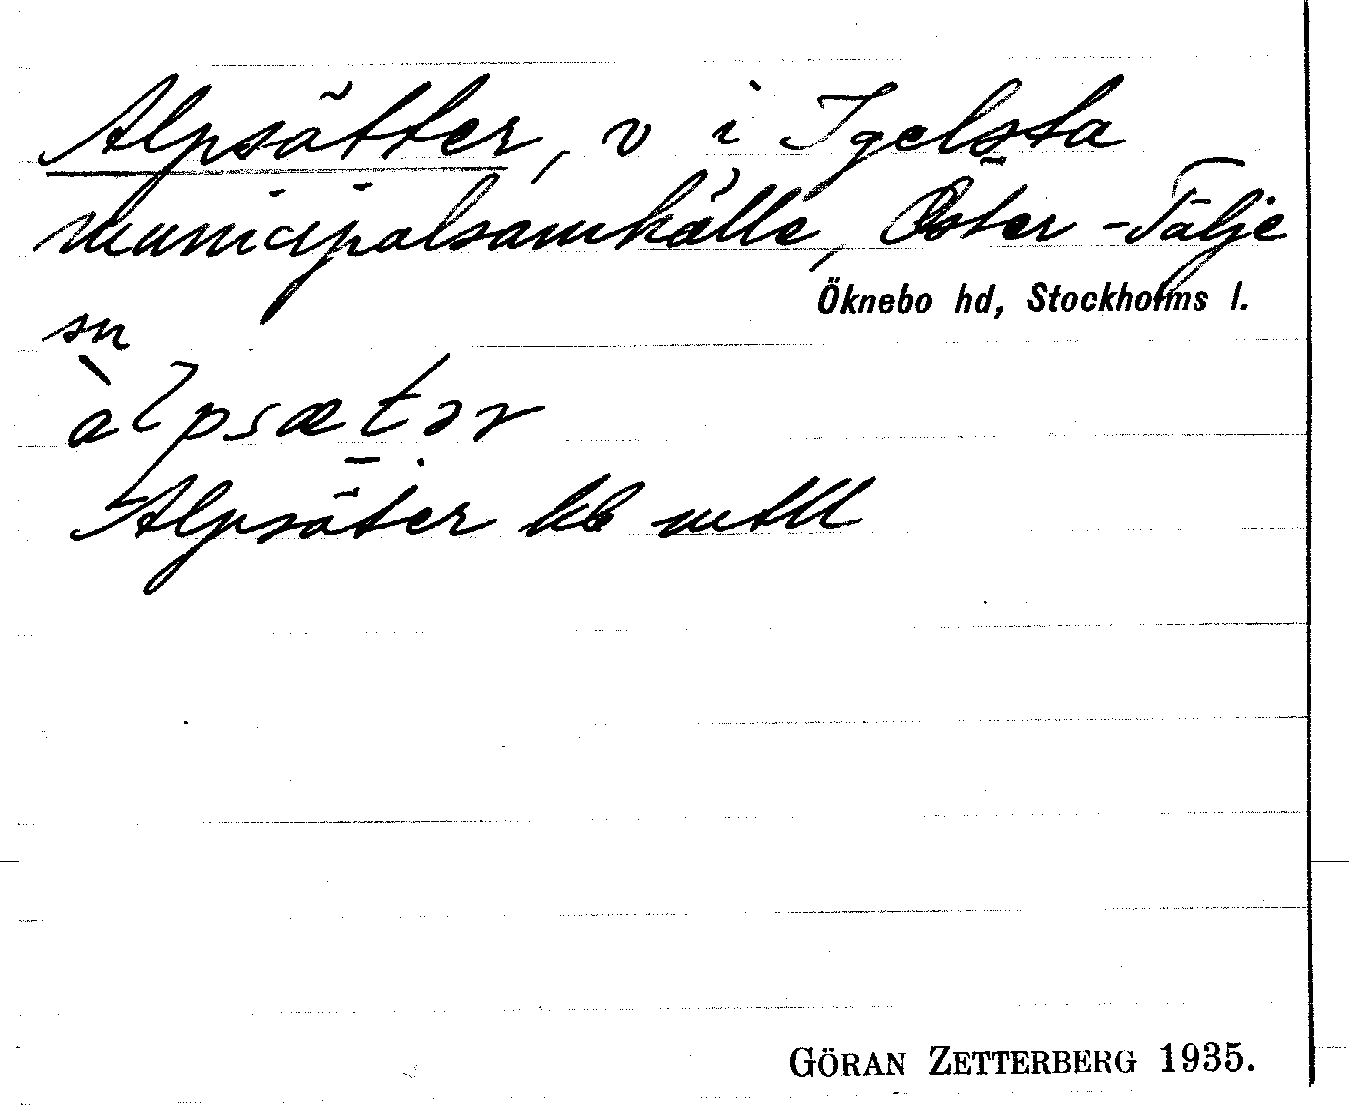 Alpsätter, v i Igelsta
municipalsamhälle, Öster-Tälje
Öknebo hd, Stockholms l.
sn
àlpsætər
Alpsäter kb mtll
GÖRAN ZETTERBERG 1935.